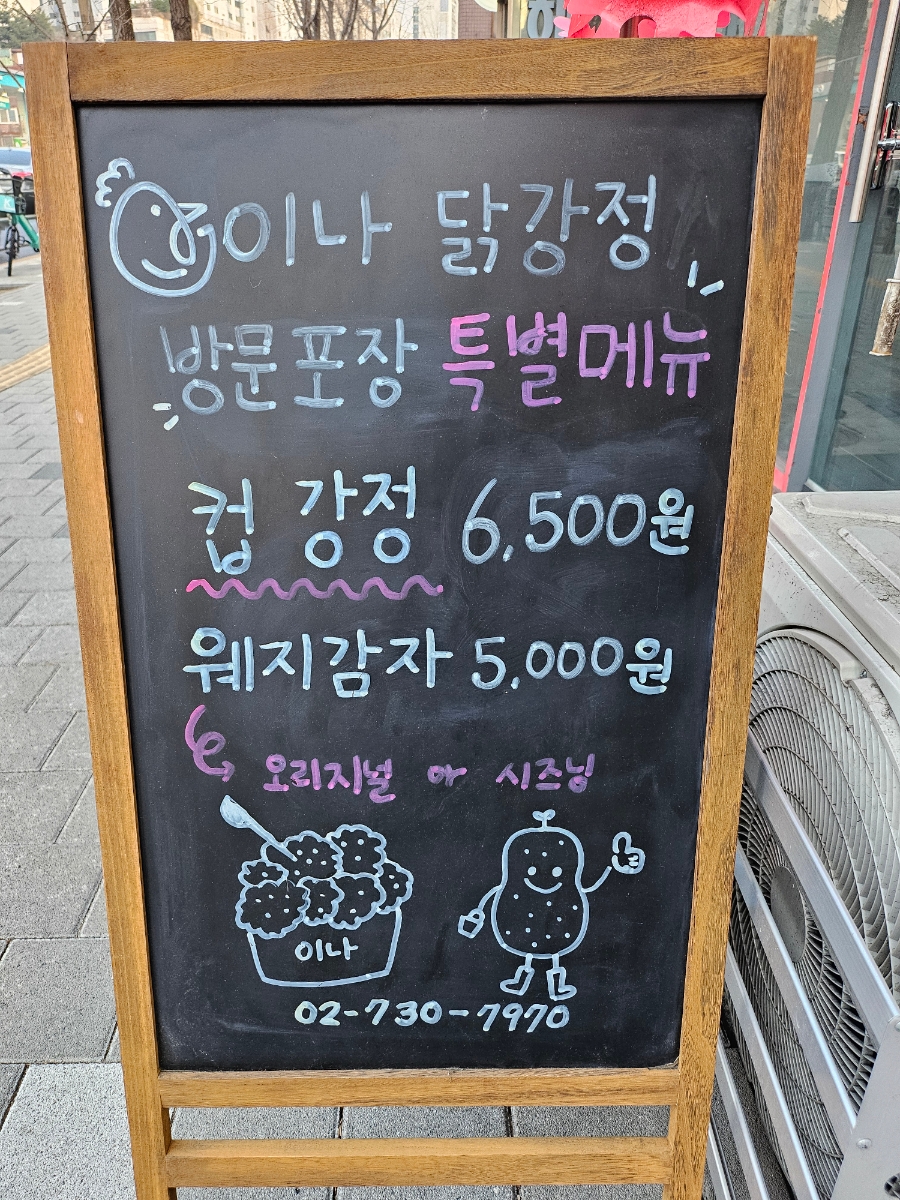 이나 닭강정
방문포장 특별메뉴
컵 강정 6,500원
웨지감자 5,000원
오리지널 or 시즈닝
이나
02-730-7970